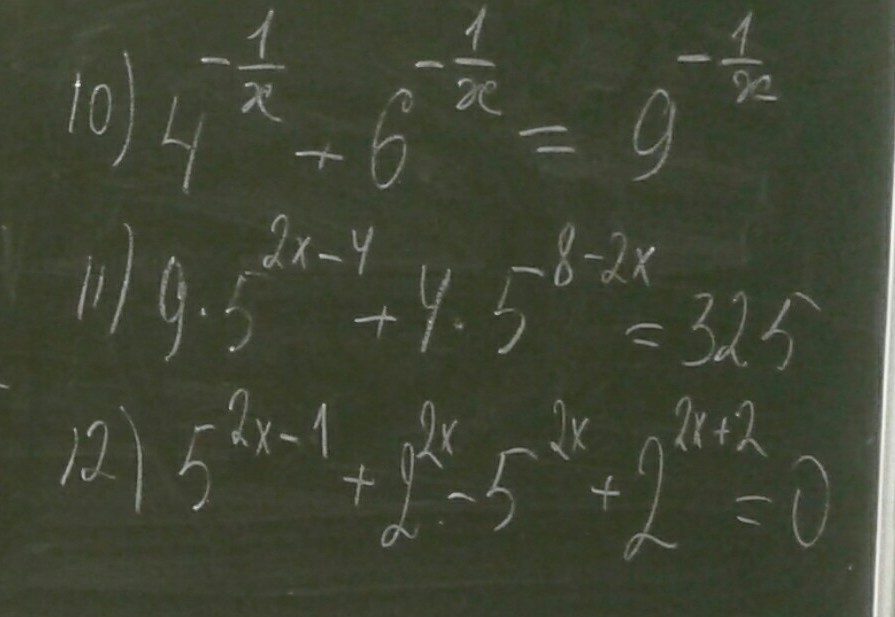 10) 4^{-\frac{1}{x}} + 6^{-\frac{1}{x}} = 9^{-\frac{1}{x}}
11) 9 \cdot 5^{2x-4} + 4 \cdot 5^{8-2x} = 325
12) 5^{2x-1} + 2^{2x} - 5^{2x} + 2^{2x+2} = 0